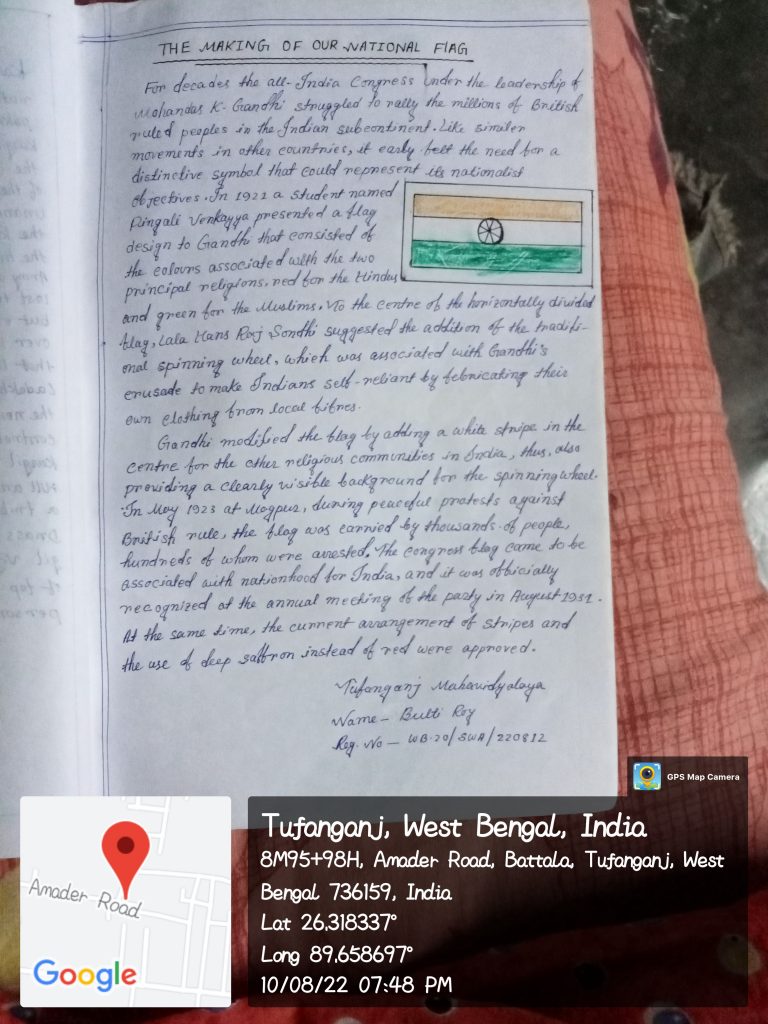 THE MAKING OF OUR NATIONAL FlAG
For decades the all-India Congress Under the leadership of
Mohandas K. Gandhi struggled to rally the millions of British
ruled peoples in the Indian subcontinent. Like similer
movements in other countries, it early felt the need for a
distinctive symbol that could represent its nationalist
objectives. In 1921 a student named
Pingali Venkayya presented a flag
design to Gandhi that consisted of
the colours associated with the two
principal religions, red for the Hindus
and green for the Muslims. To the centre of the horizontally divided
flag, Lala Hans Raj Sondhi suggested the addition of the traditi-
onal spinning wheel, which was associated with Gandhi's
crusade to make Indians self-reliant by febricating their
own clothing from local fibres.
Gandhi modified the flag by adding a white stripe in the
centre for the other religious communities in India, thus, also
providing a clearly visible background for the spinning wheel.
In May 1923 at Nagpur, during peaceful protests against
British rule, the flag was carried by thousands of people,
hundreds of whom were arrested. The congress flag came to be
associated with nationhood for India, and it was officially
recognized at the annual meeting of the party in August 1931.
At the same time, the current arrangement of stripes and
the use of deep saffron instead of red were approved.
Tufanganj Mahavidyalaya
Name - Bulti Roy
Reg. No - WB.20/SWA/220812
GPS Map Camera
Amader Road
Google
Tufanganj, West Bengal, India
8M95+98H, Amader Road, Battala, Tufanganj, West
Bengal 736159, India
Lat 26.318337°
Long 89.658697°
10/08/22 07:48 PM